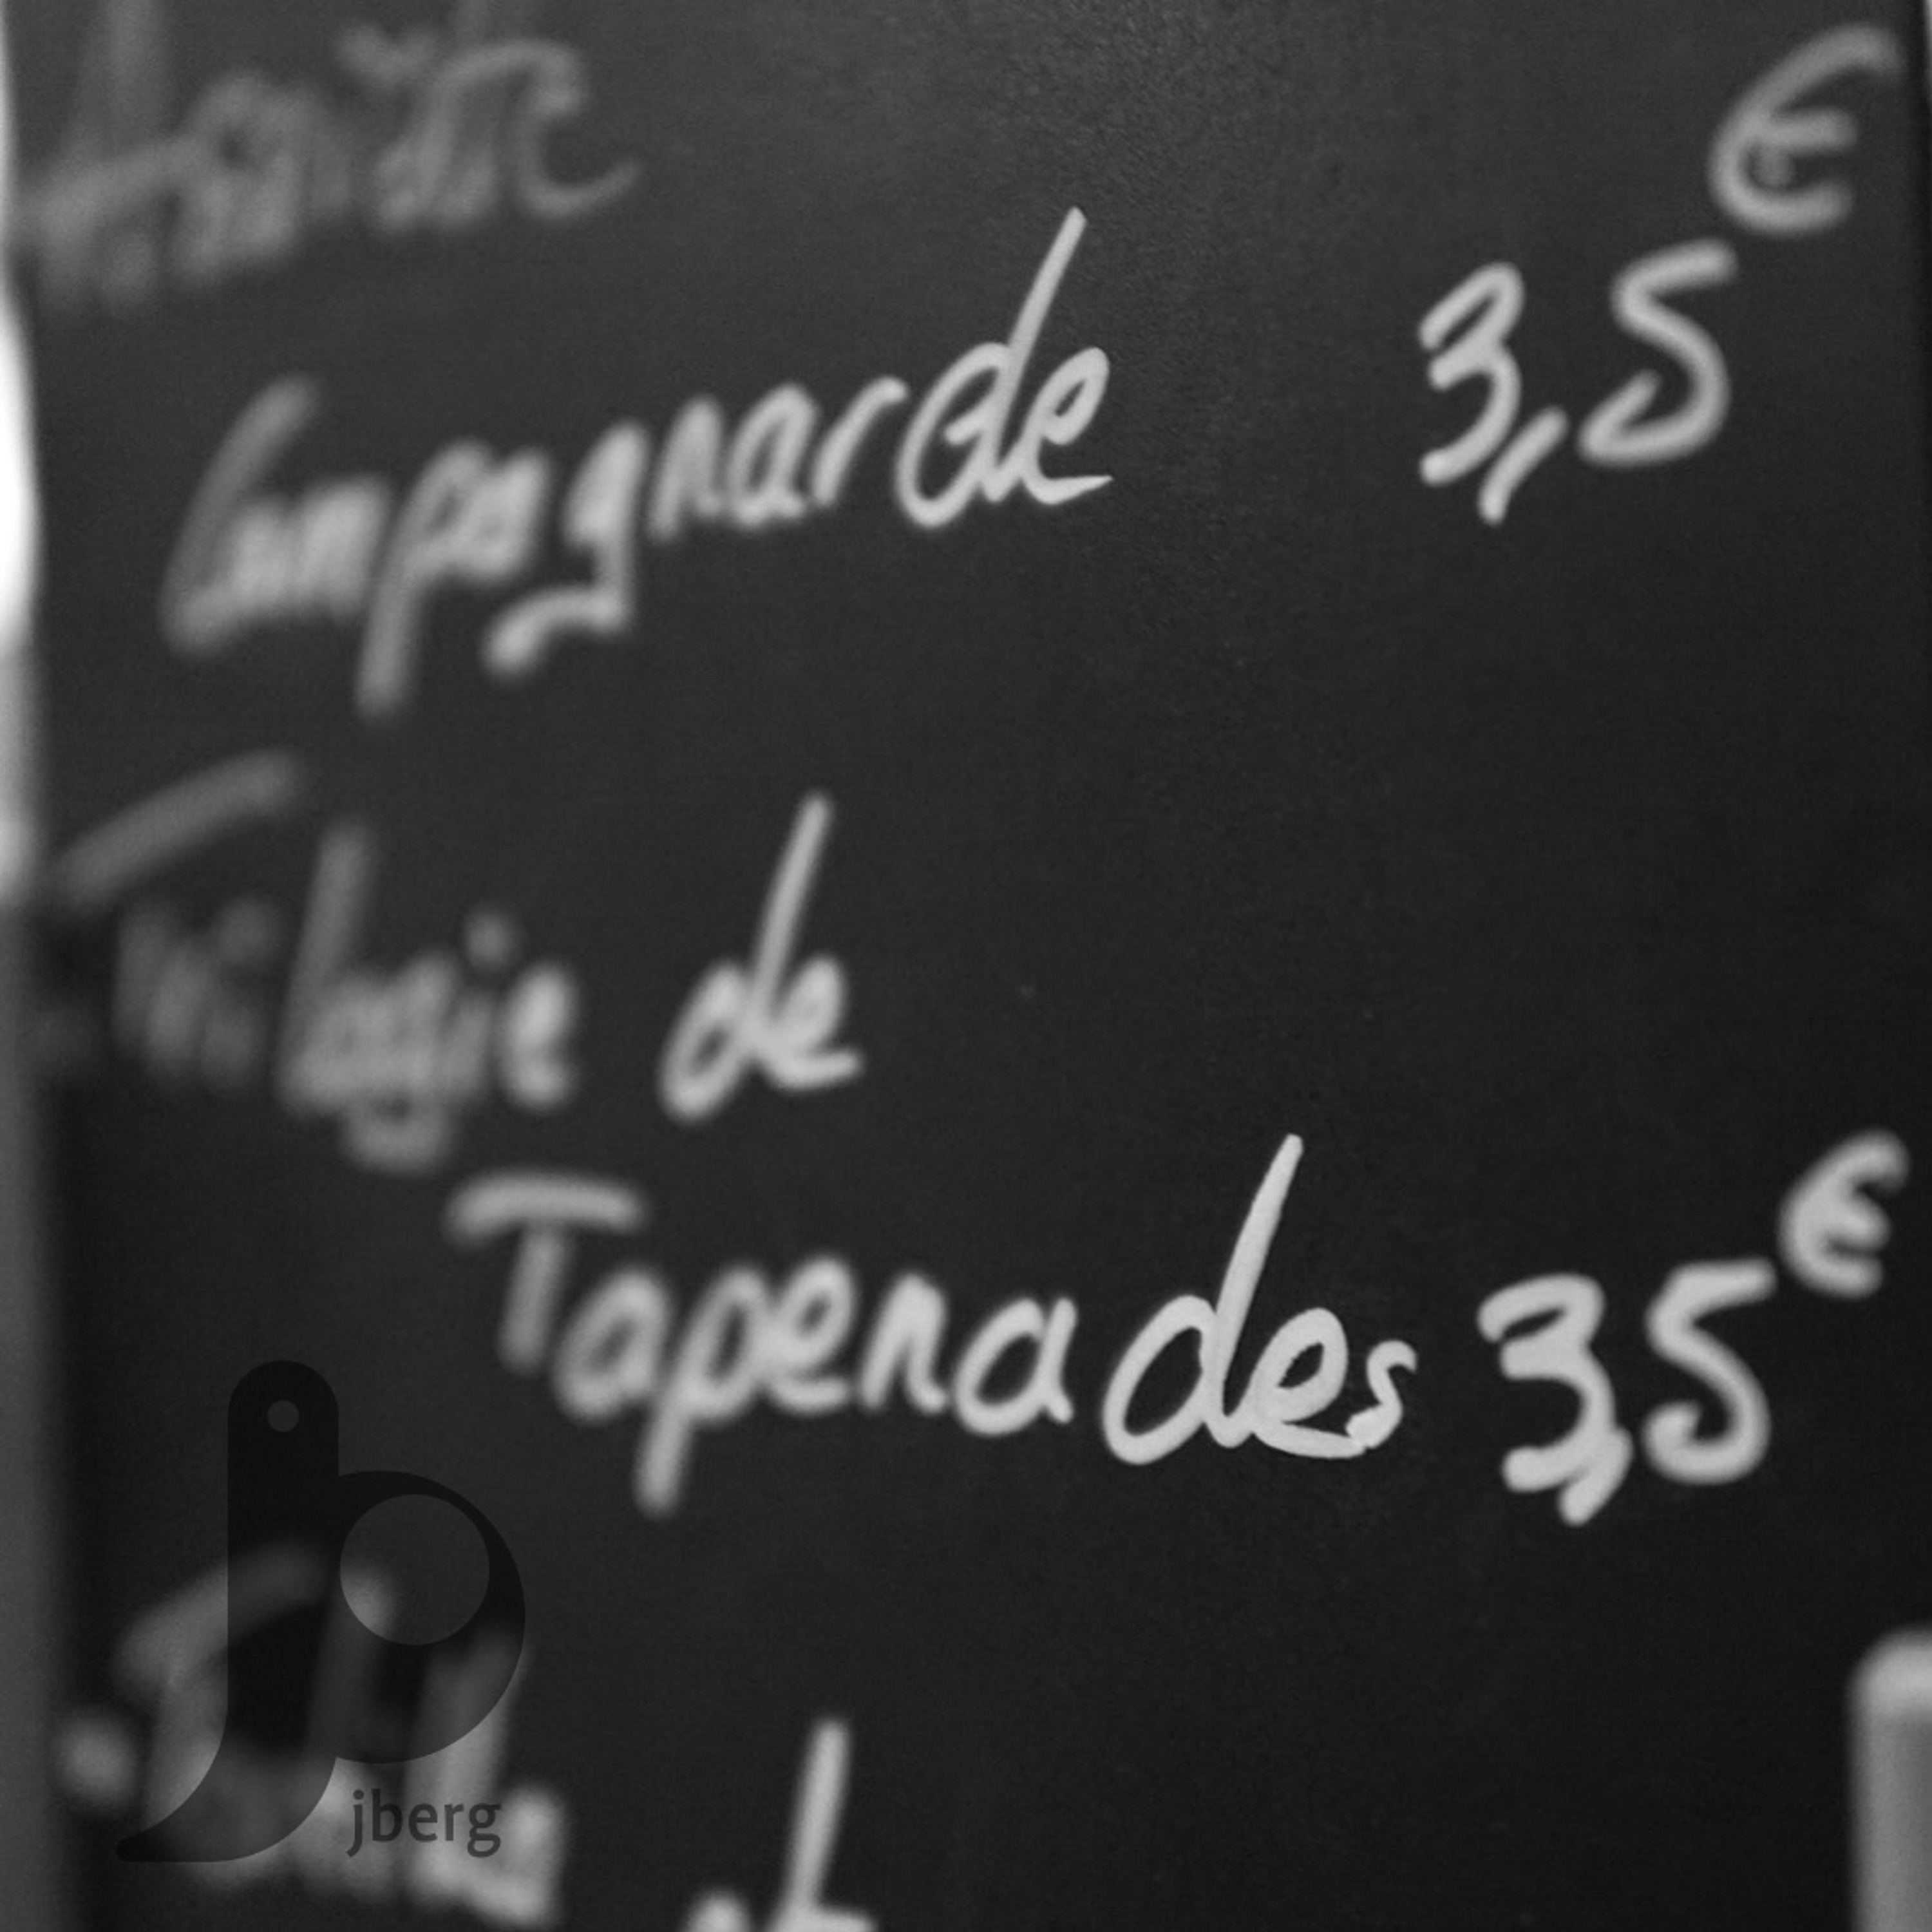 Campagnarde 3,5 €
Trilogie de
Tapenades 3,5 €
jberg